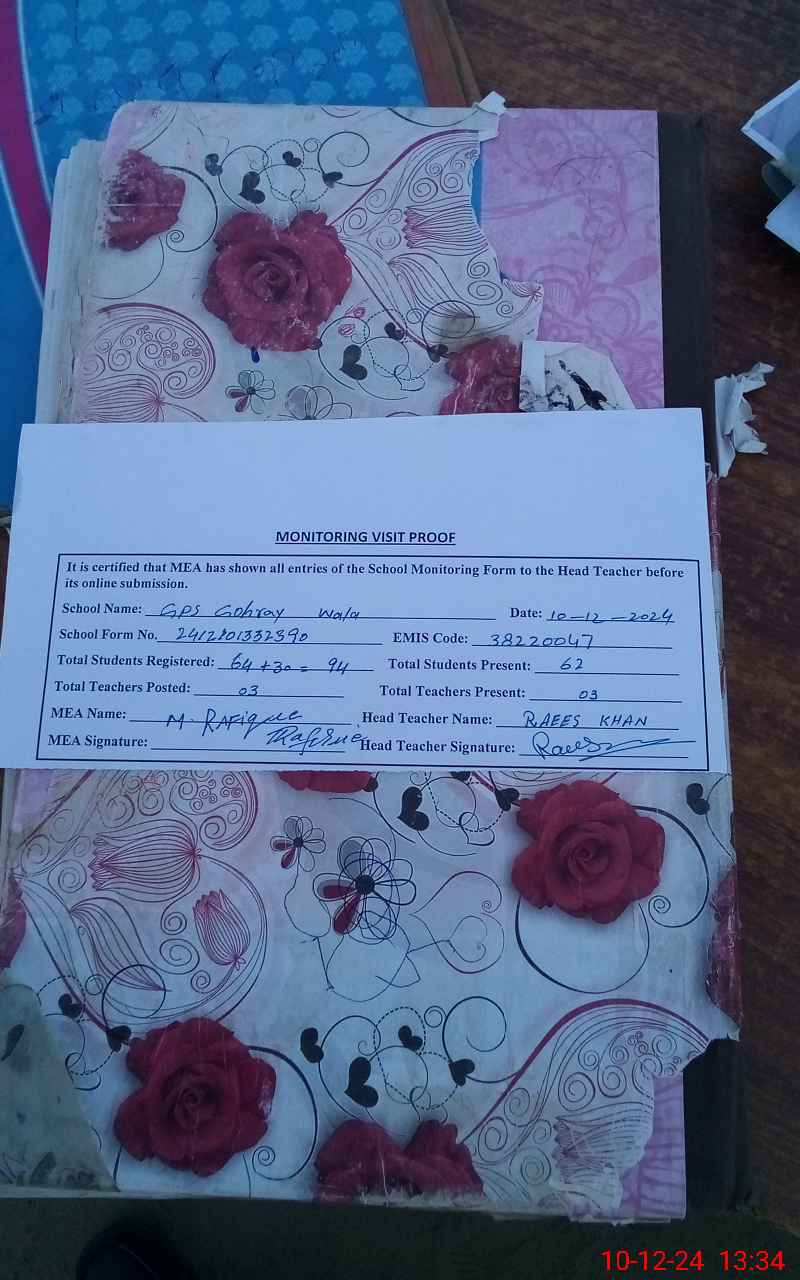 MONITORING VISIT PROOF
It is certified that MEA has shown all entries of the School Monitoring Form to the Head Teacher before
its online submission.
School Name: GPS Gohray Wala Date: 10-12-2024
School Form No. 2412801332390 EMIS Code: 38220047
Total Students Registered: 64+30= 94 Total Students Present: 62
Total Teachers Posted: 03 Total Teachers Present: 03
MEA Name: M. RAFique Head Teacher Name: RAEES KHAN
MEA Signature: Rafique Head Teacher Signature: Raees
10-12-24 13:34